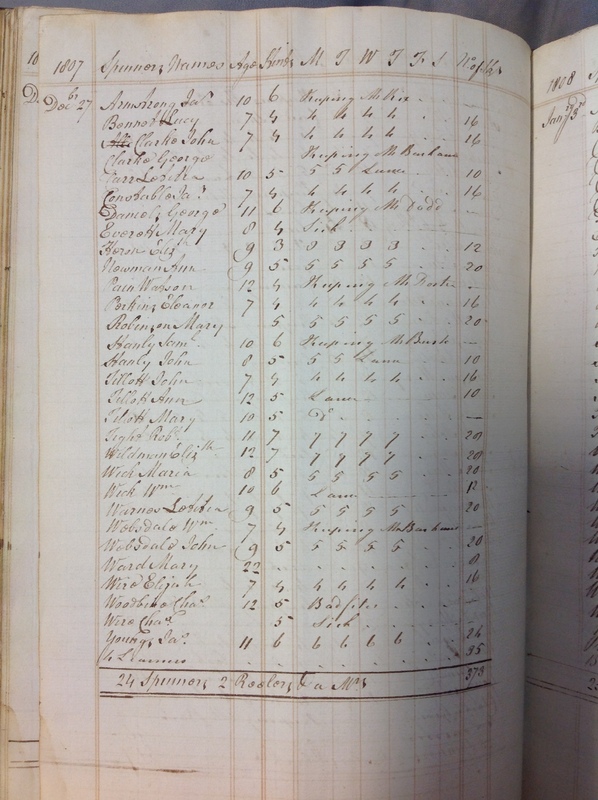 1807 Spinners Names Age Hinds M T W T F S No of Hds
Decbr 27 Armstrong Jas 10 6 Keping Mr Rix
Bonnor Lucy 7 4 4 4 4 4 16
Clarke John 7 4 4 4 4 4 16
Clarke George Keping Mr Burham
Carr Loetitia 10 5 5 5 Lame 10
Constable Jas 7 4 4 4 4 4 16
Daniels George 11 6 Keping Mr Dodd
Everett Mary 8 4 Sick
Heron Elizth 9 3 3 3 3 3 12
Newman Ann 9 5 5 5 5 5 20
Pain Watson 12 4 Keping Mr
Perkins Eleanor 7 4 4 4 4 4 16
Robinson Mary 5 5 5 5 5 20
Hanly Saml 10 6 Keping Mr —
Hanly John 8 5 5 5 Lame 10
Tillott John 7 4 4 4 4 4 16
Tillott Ann 12 5 Lame 10
Tillott Mary 10 5 Do —
Tight Robt 11 7 7 7 7 7
Wildman Elizth 12 7 7 7 7 7
Wick Maria 8 5 5 5 5 5 20
Wick Wm 10 6 Lame 12
Warnes Loetitia 9 5 5 5 5 5 20
Websdale Wm 7 4 Keping Mr Burham —
Websdale John 9 5 5 5 5 5 20
Ward Mary 22 8
Wire Elijah 7 4 4 4 4 4 16
Woodbine Chas 12 5 Bad
Wire Chas 5 Sick
Youngs Jas 11 6 6 6 6 6 24
35
24 Spinners 2 Reelers & a Mrs 373
1808
Jany 3d